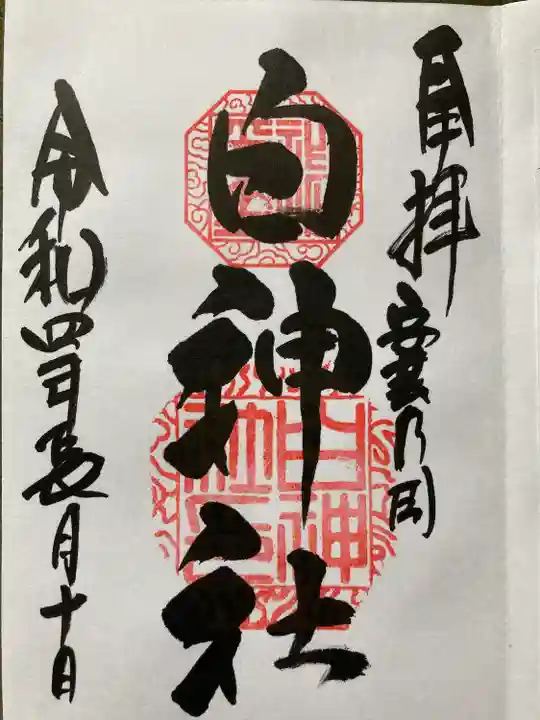 奉拝 安芸乃国
白神社
令和四年長月十日
白神
社印